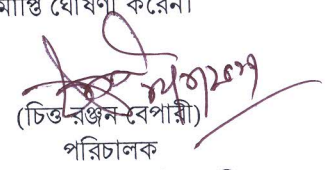 ঘোষণা করেন।
(চিত্ত রঞ্জন বেপারী)
পরিচালক